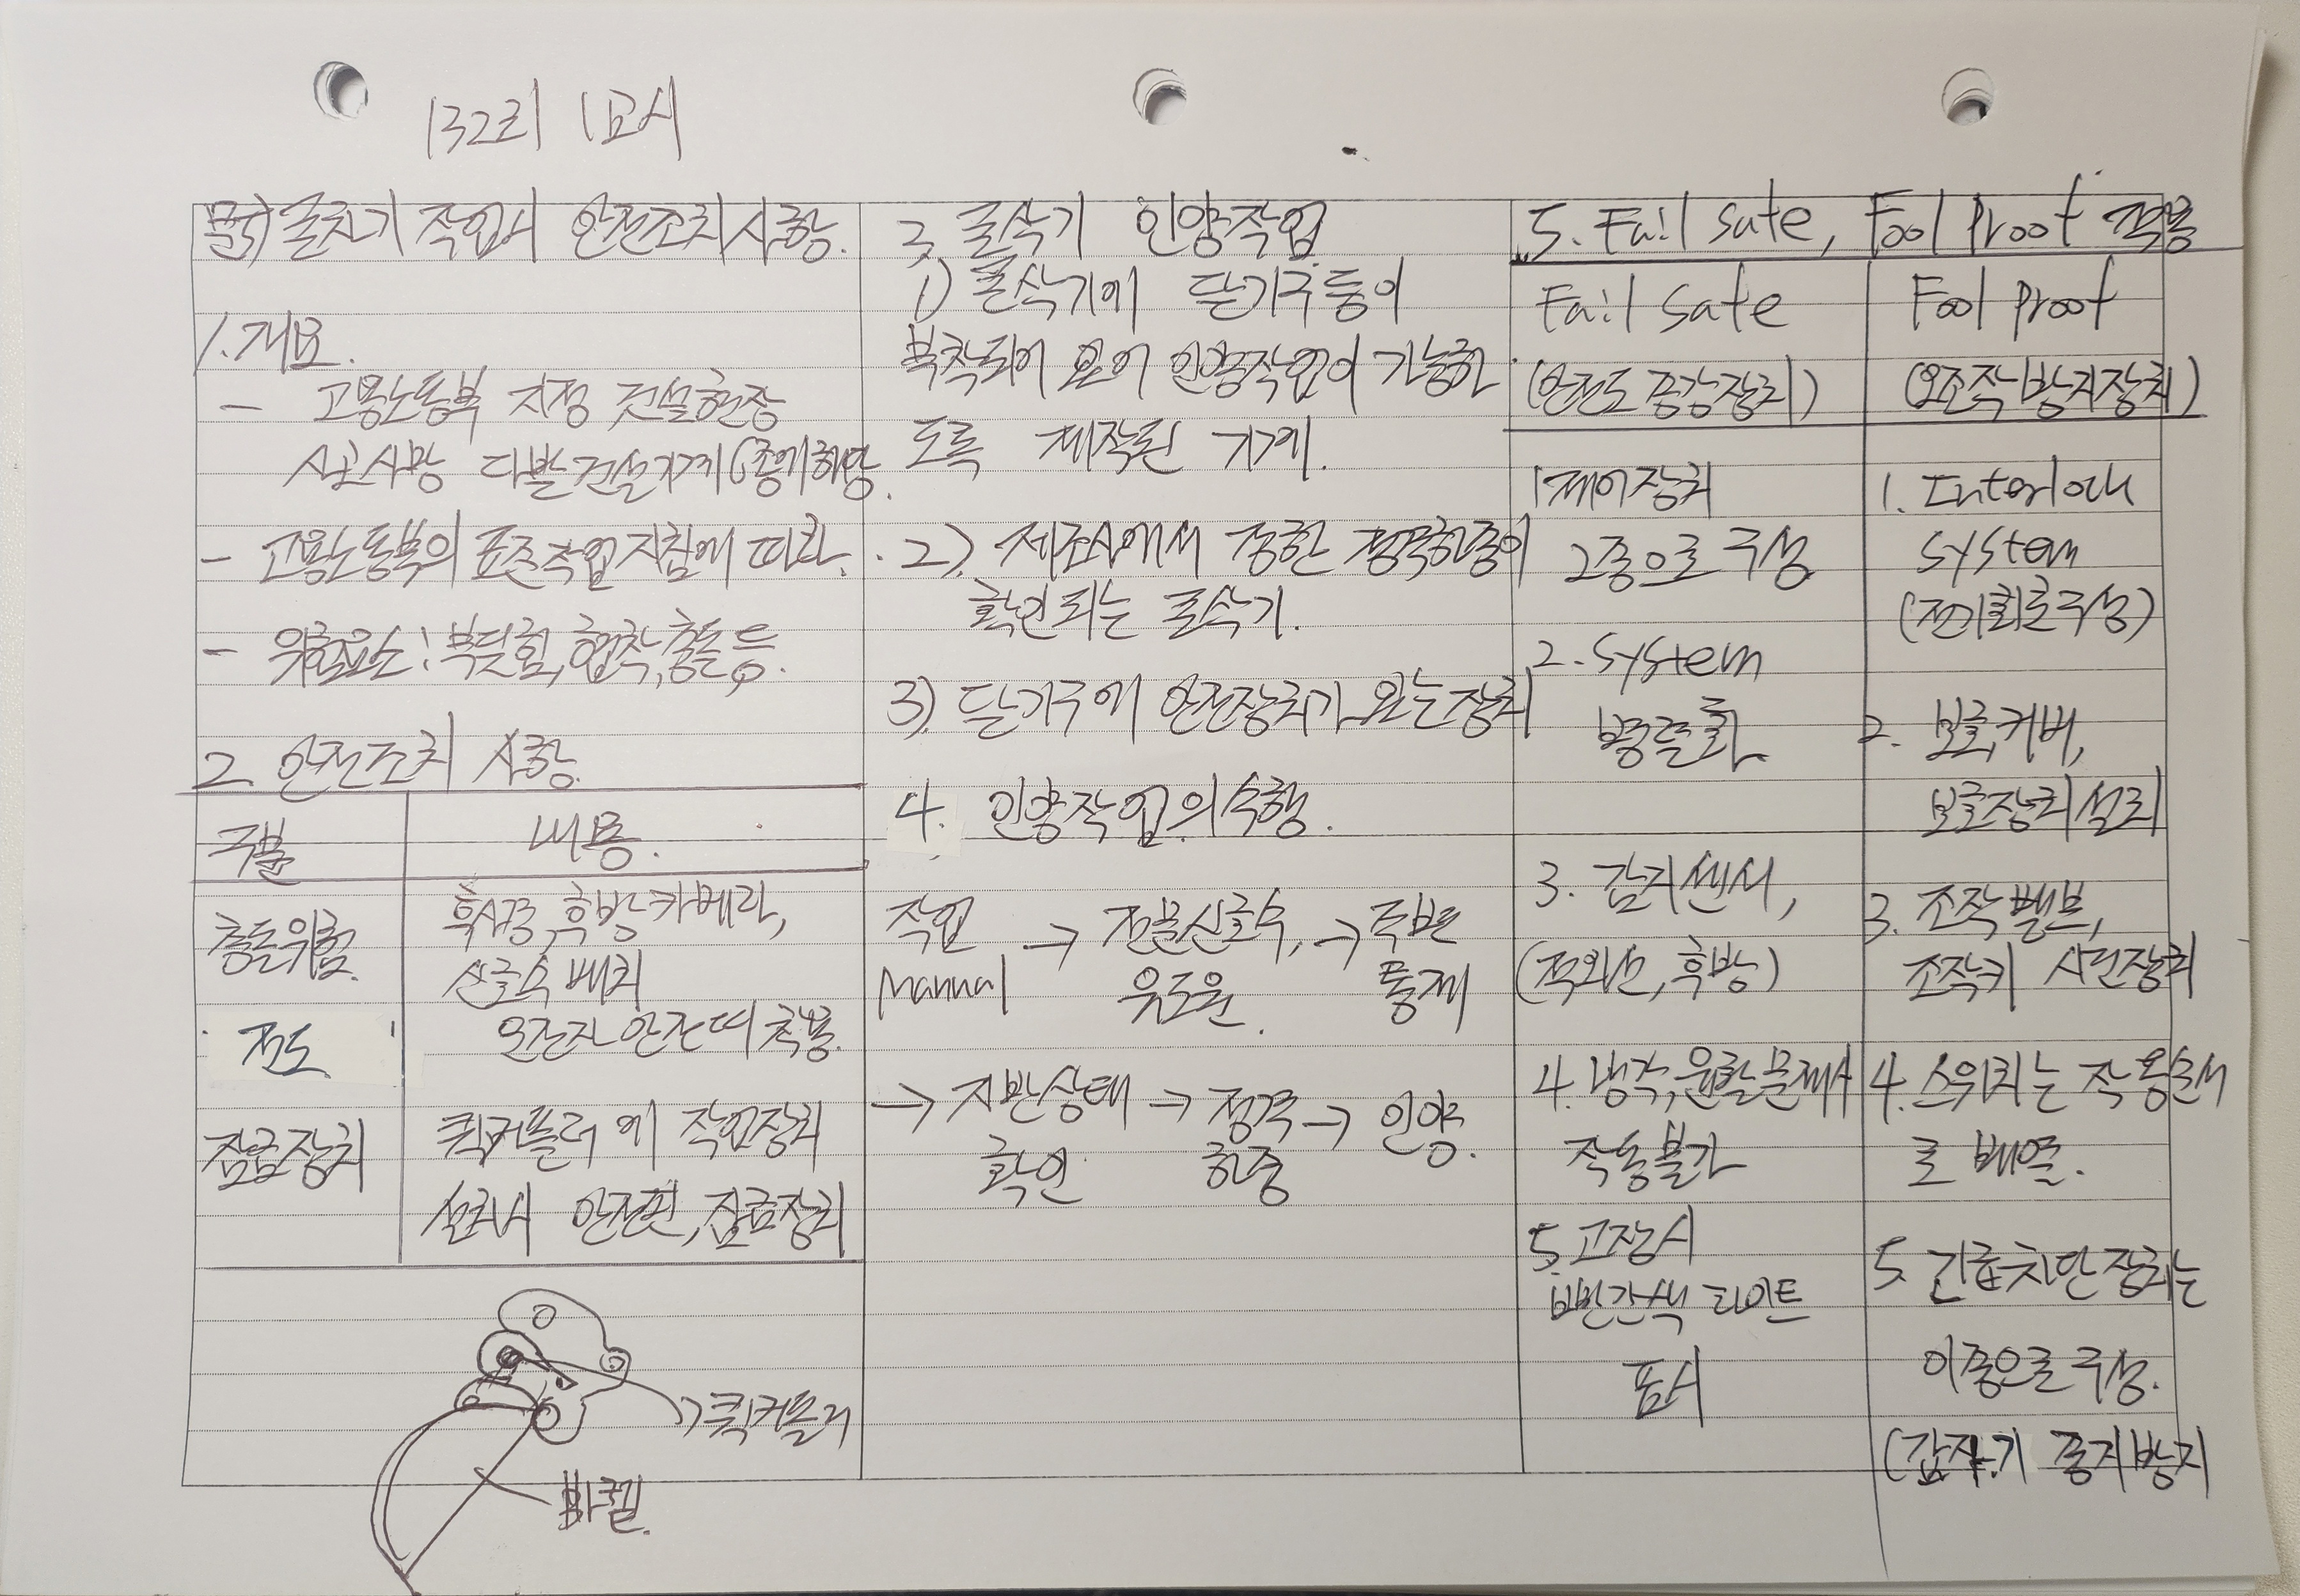 132회 1교시
문5) 굴착기 작업시 안전조치사항.
1. 개요.
- 고용노동부 지정 건설현장
사고사망 다발 건설기계 에 해당.
- 고용노동부의 표준작업지침에 따라.
- 위험요소: 부딪힘, 협착, 충돌 등.
2. 안전조치 사항
구분 내용.
충돌위험. 후사경, 후방카메라,
신호수 배치
전도 운전자 안전띠 착용.
잠금장치 퀵커플러에 작업장치
설치시 안전핀, 잠금장치
퀵커플러
바켙.
3. 굴삭기 인양작업.
1) 굴삭기에 달기구 등이
부착되어 있어 인양작업이 가능하
도록 제작된 기계.
2) 제조사에서 정한 정격하중이
확인되는 굴삭기.
3) 달기구에 안전장치가 있는 장치
4. 인양작업의 수행.
작업 → 신호수, → 주변
Manual 유도원. 통제
→ 지반상태 → 정격 → 인양.
확인 하중
5. Fail safe, Fool Proof 적용
Fail safe
(안전도 증강장치)
1 제어장치
2중으로 구성
2. System
병렬화
3. 감지센서,
(적외선, 후방)
4. 냉각, 윤활 문제시
작동불가
5. 고장시
빨간색 라이트
표시
Fool Proof
(오조작 방지장치)
1. Interlock
system
(전기회로구성)
2. 보호커버,
보호장치 설치
3. 조작 밸브,
조작키 시건장치
4. 스위치는 작동순서
로 배열.
5. 긴급차단장치는
이중으로 구성.
(갑자기 중지방지